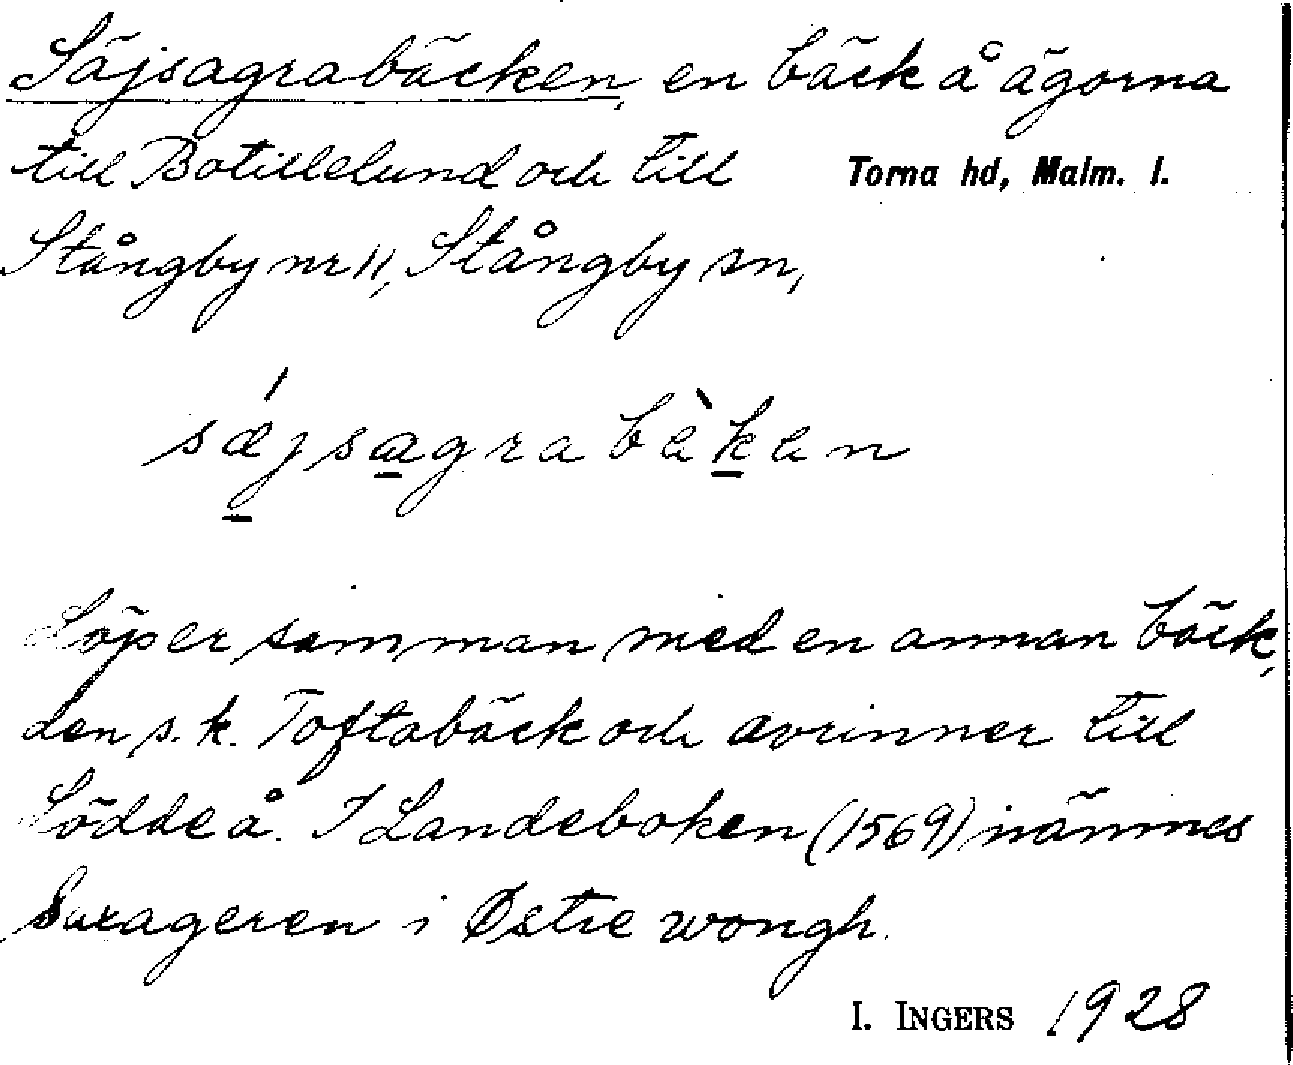 Säjsagrabäcken, en bäck å ägorna
till Botillelund och till Torna hd, Malm. l.
Stångby nr 11, Stångby sn,
sǽjsagrabèken
Löper samman med en annan bäck,
den s.k. Toftabäck och avrinner till
Lödde å. I Landeboken (1569) nämnes
Sæxageren i Østre wongh.
I. INGERS 1928